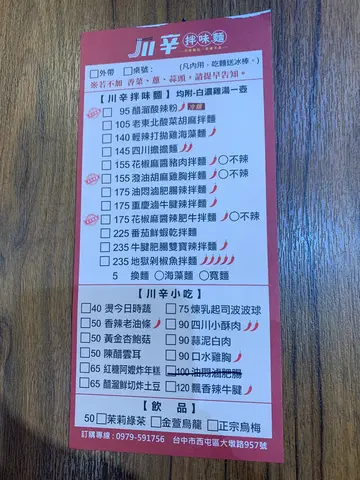 川辛 拌味麵
□外帶 □桌號： (凡內用，吃麵送冰棒。)
※若不加 香菜、蔥、蒜頭，請提早告知。
【川辛拌味麵】均附-白濃雞湯一壺
□ 95 醋溜酸辣粉 冷麵
□ 105 老東北酸菜胡麻拌麵
□ 140 輕辣打拋雞海藻麵
□ 145 四川擔擔麵
□ 155 花椒麻醬豬肉拌麵 ○不辣
□ 155 潑油胡麻雞胸拌麵 ○不辣
□ 175 油悶滷肥腸辣拌麵
□ 175 重慶滷牛腱辣拌麵
□ 175 花椒麻醬辣肥牛拌麵 ○不辣
□ 225 番茄鮮蝦乾拌麵
□ 235 牛腱肥腸雙寶辣拌麵
□ 235 地獄剁椒魚拌麵
5 換麵 ○海藻麵 ○寬麵
【川辛小吃】
□40 燙今日時蔬 □75 煉乳起司波波球
□50 香辣老油條 □90 四川小酥肉
□50 黃金杏鮑菇 □90 蒜泥白肉
□50 陳醋雲耳 □90 口水雞胸
□65 紅糖阿嬤炸年糕 □100 油悶滷肥腸
□65 醋溜鮮切炸土豆 □120 飄香辣牛腱
【飲品】
50 □茉莉綠茶 □金萱烏龍 □正宗烏梅
訂購專線：0979-591756 台中市西屯區大墩路957號